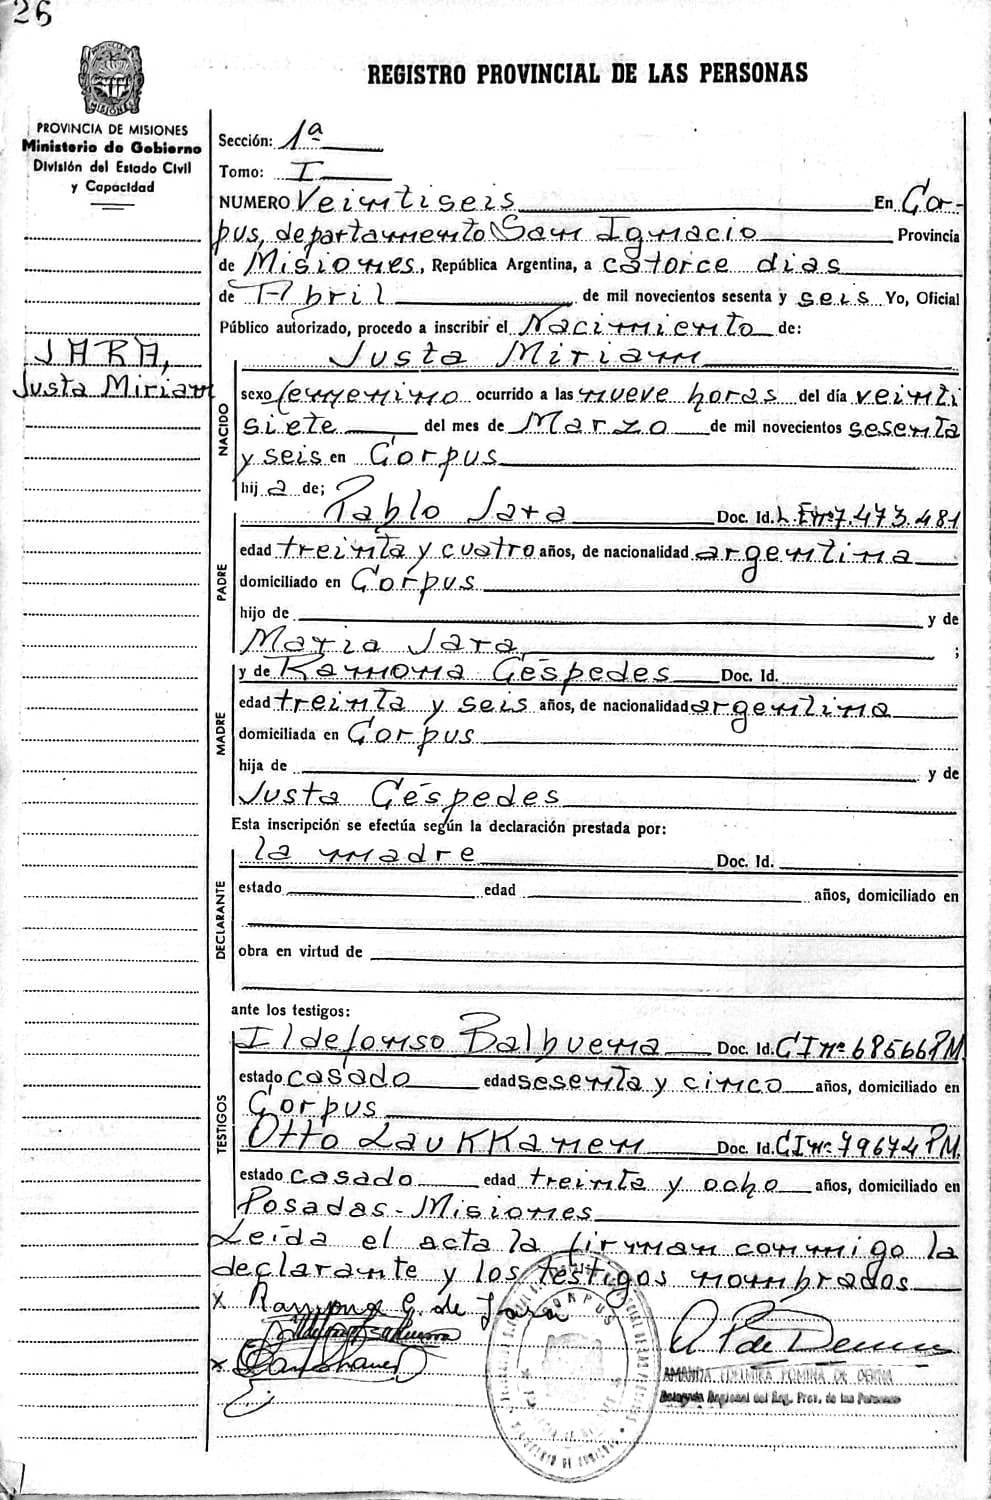 26
REGISTRO PROVINCIAL DE LAS PERSONAS
MISIONES
PROVINCIA DE MISIONES
Ministerio de Gobierno
División del Estado Civil
y Capacidad
JARA,
Justa Miriam
Sección: 1ª
Tomo: I
NUMERO Veintiseis En Cor-
pus, departamento San Ignacio Provincia
de Misiones, República Argentina, a catorce dias
de Abril de mil novecientos sesenta y seis Yo, Oficial
Público autorizado, procedo a inscribir el Nacimiento de:
Justa Miriam
NACIDO
sexo femenino ocurrido a las nueve horas del día veinti
siete del mes de Marzo de mil novecientos sesenta
y seis en Corpus
hij a de;
PADRE
Pablo Jara Doc. Id. L.E.nº7.473.481
edad treinta y cuatro años, de nacionalidad argentina
domiciliado en Corpus
hijo de y de
Maria Jara ;
MADRE
y de Ramona Céspedes Doc. Id.
edad treinta y seis años, de nacionalidad argentina
domiciliada en Corpus
hija de y de
Justa Céspedes
Esta inscripción se efectúa según la declaración prestada por:
DECLARANTE
la madre Doc. Id.
estado edad años, domiciliado en
obra en virtud de
ante los testigos:
TESTIGOS
Ildefonso Balbuena Doc. Id. CI nº 68566PM
estado casado edad sesenta y cinco años, domiciliado en
Corpus
Otto Laukkanen Doc. Id. CI nº 79674PM.
estado casado edad treinta y ocho años, domiciliado en
Posadas - Misiones
Leída el acta la firman conmigo la
declarante y los testigos nombrados
x Ramona C. de Jara
CORPUS
Delegada Regional del Reg. Prov. de las Personas